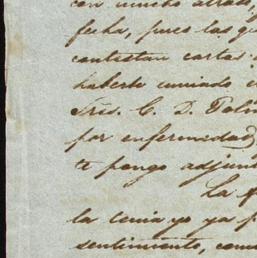 con mucho atraso,
fecha, pues las qu
contestan cartas
haberte enviado
Sres. C. D.
por enfermedad,
te pongo adjun
La
la tenia yo ya p
sentimiento, com